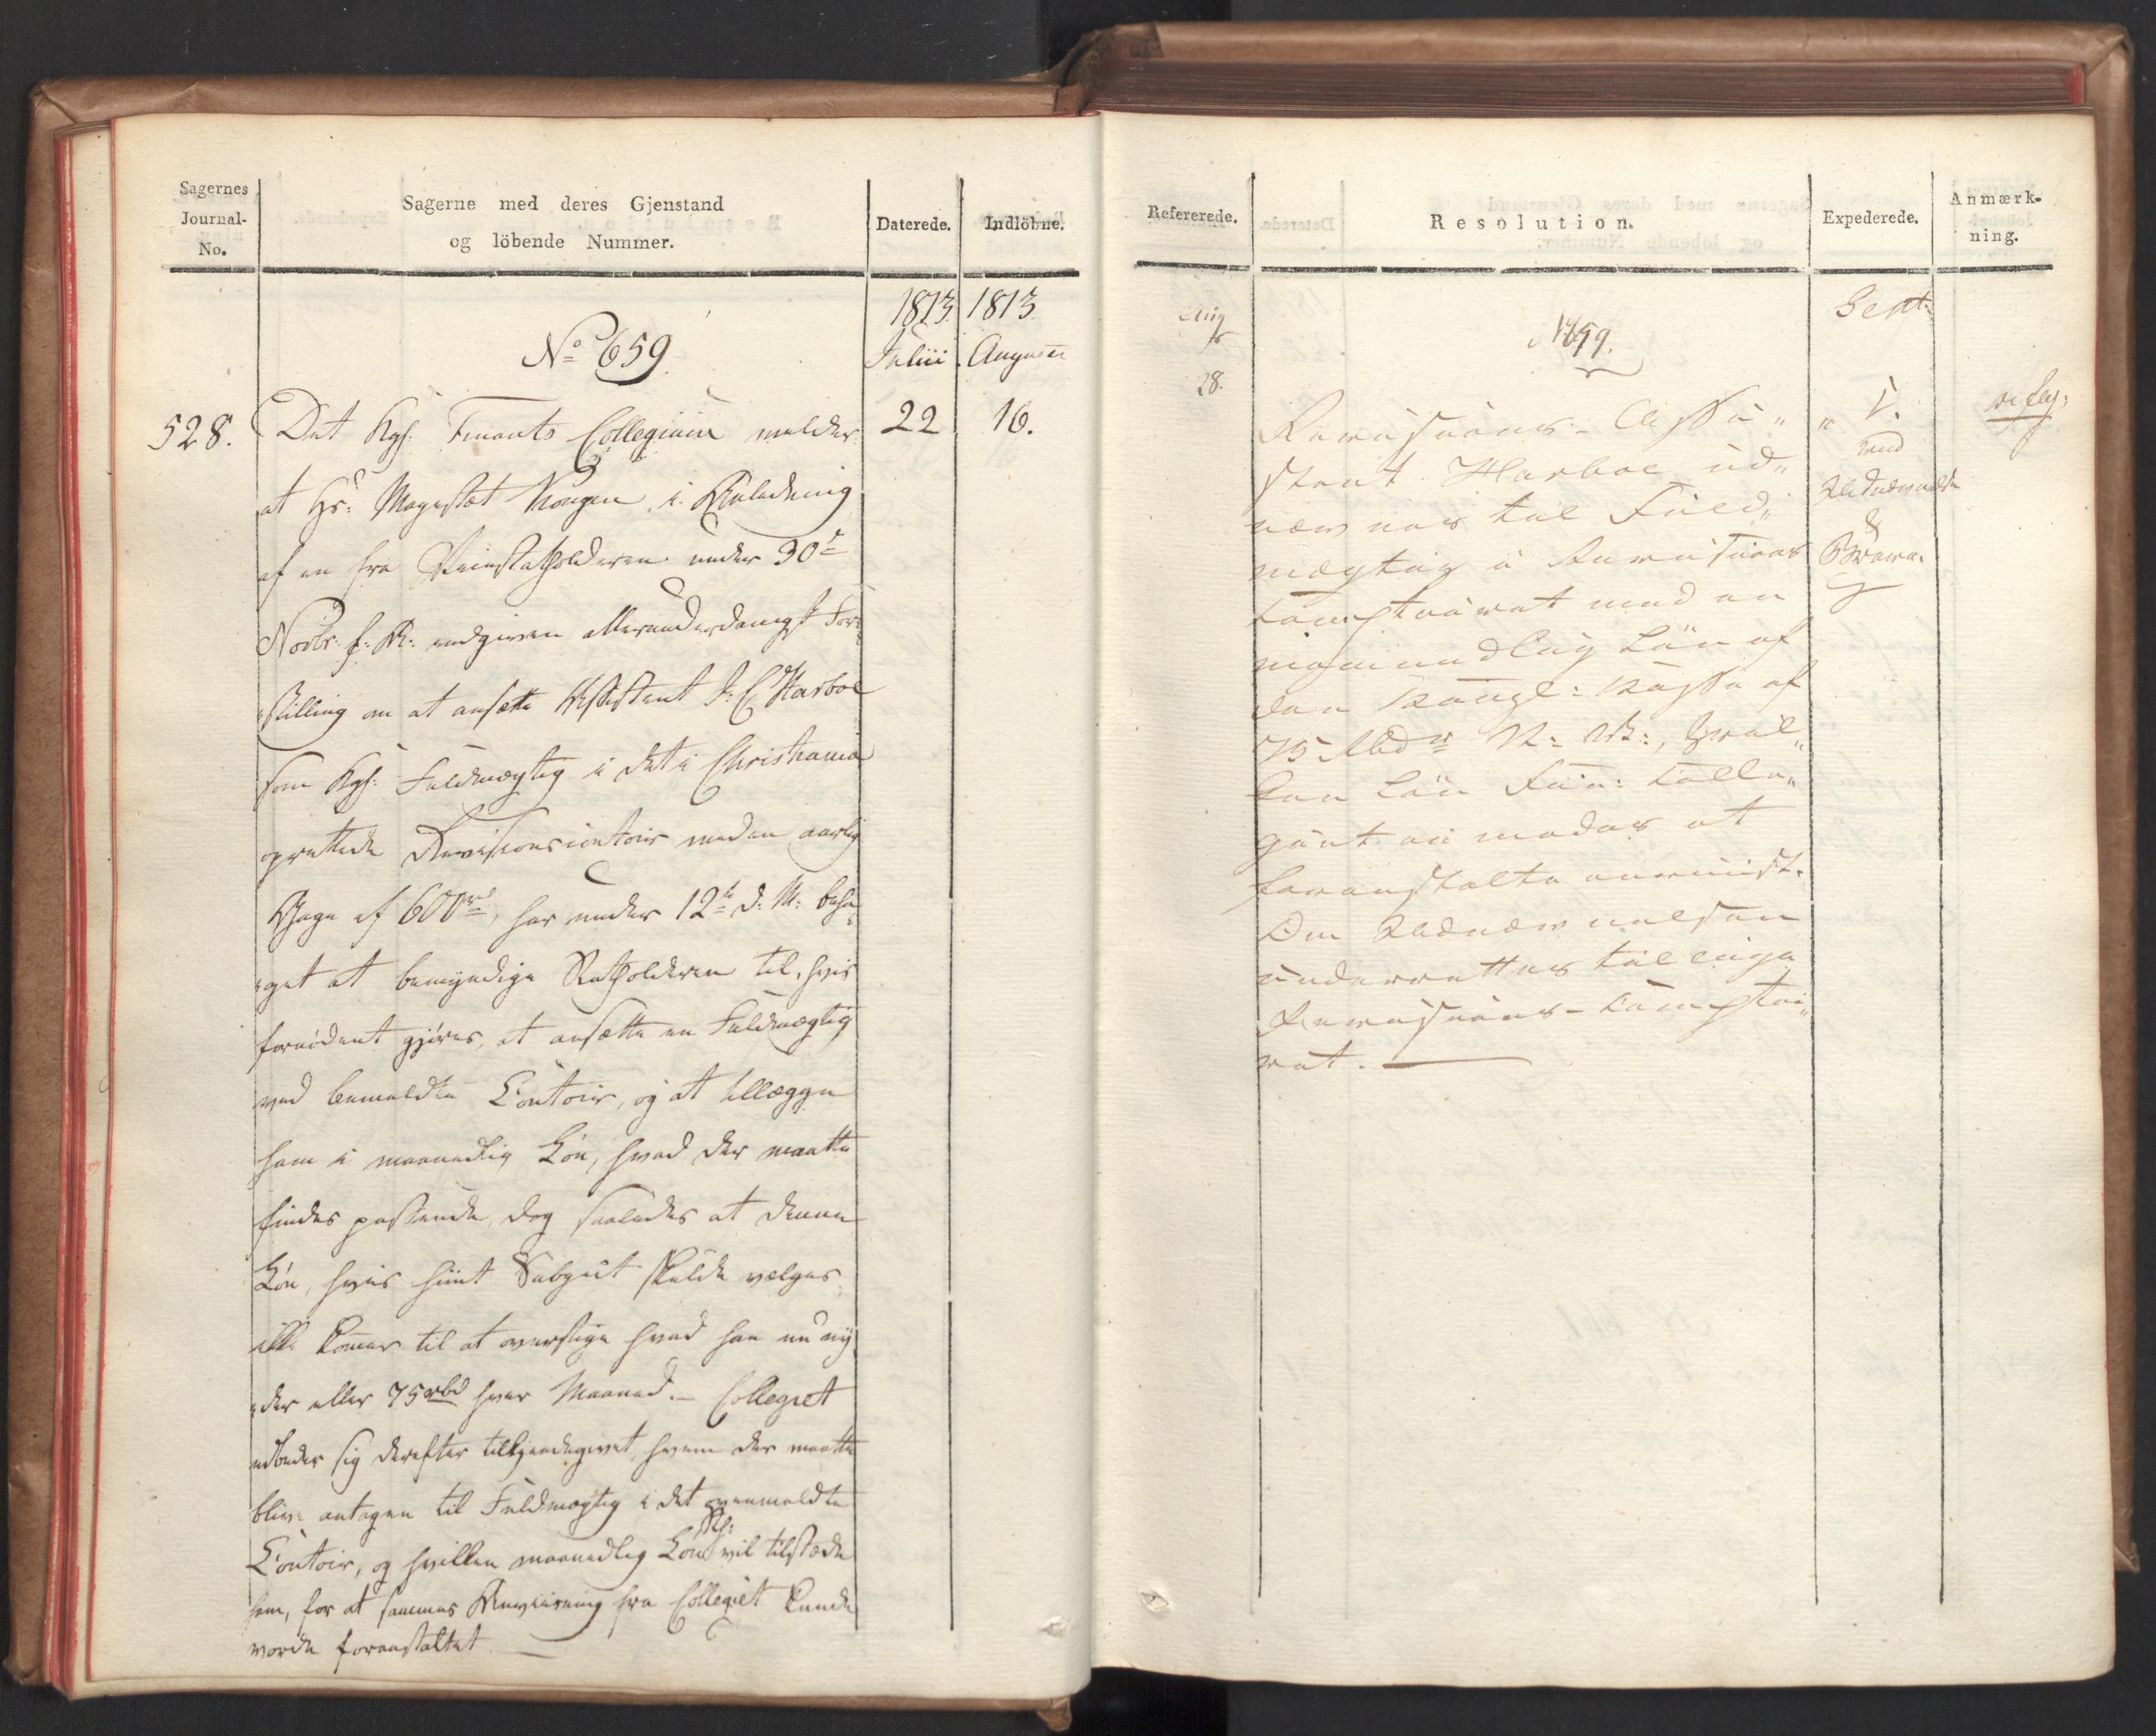 Sagernes
Journal-
No.
Sagerne med deres Gjenstand
og löbende Nummer.
Daterede.
Indlöbne.
1813.
1813
Julii
August
No 659.
528.
22
16.
Det Kgl. Finants Collegium melder
at Hs: Majestæt Kongen, i Anledning
af en fra Viceststatholderen under 30te
Novbr: f: A: indgiven allerunderdanigst Fore
stilling om at ansætte Assistent J. C. Harboe
som Kgl: Fuldmægtig i det i Christiania
oprettede Revisionscontoir med en aarlig
Gage af 600 rd, har under 12te d: M: beha
get at bemyndige Statholderen til, hvis
fornödent gjöres, at ansætte en Fuldmægtig
ved bemeldte Contoir, og at tillægge
ham i maanedlig Lön, hvad der maatte
findes passende, dog saaledes at denne
Lön, hvis hiint Subject skulde vælges
ikke kom̄er til at overstige hvad han nu ny
der eller 75 rbd hver Maaned. – Collegiet
udbeder sig derefter tilkjendegivet, hvem der maatte
blive antagen til Fuldmægtig i det ovenmeldte
Contoir, og hvilken maanedlig Lön vil tilstæde
ham, for at sammes Anviisning fra Collegiet kunde
vorde foranstaltet. —
Refererede.
Resolution.
Expederede.
Anmærk-
ning.
Aug
28.
659.
Sept:
Revisions-Assi„
stent Harboe ud„
nævnes til Fuld„
mægtig i Revisions
Comptoiret med en
maanedlig Lön af
den Kongl: Kasse af
75 Rbdr N: V:, hvil„
ken Lön Fin: Colle„
giet anmodes at
foranstalte anviist.
Om Udnævnelsen
underrettes tillige
Revisions-Comptoi„
ret. —
„ 1.
med
Udnævnelse
&
Breve.